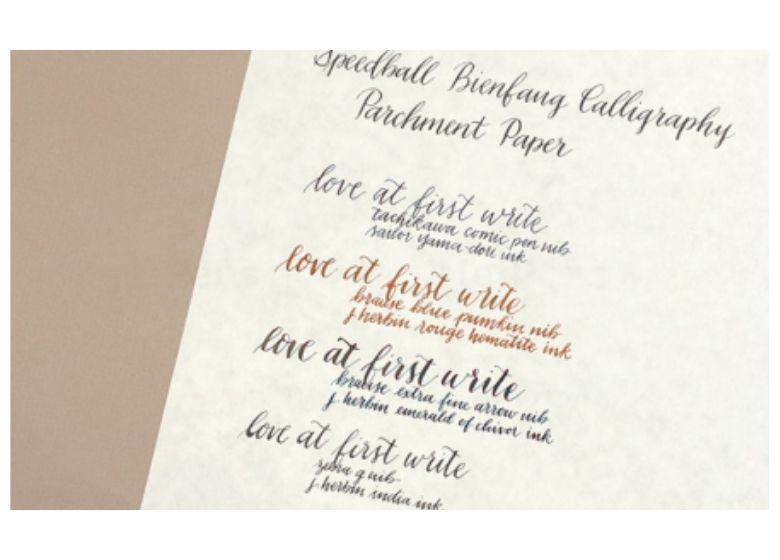 Speedball Bienfang Calligraphy
Parchment Paper
love at first write
tachikawa comic pen nib
sailor yama-dori ink
love at first write
brause blue pumkin nib
j herbin rouge hematite ink
love at first write
brause extra fine arrow nib
j. herbin emerald of chivor ink
love at first write
zebra g nib
j. herbin india ink